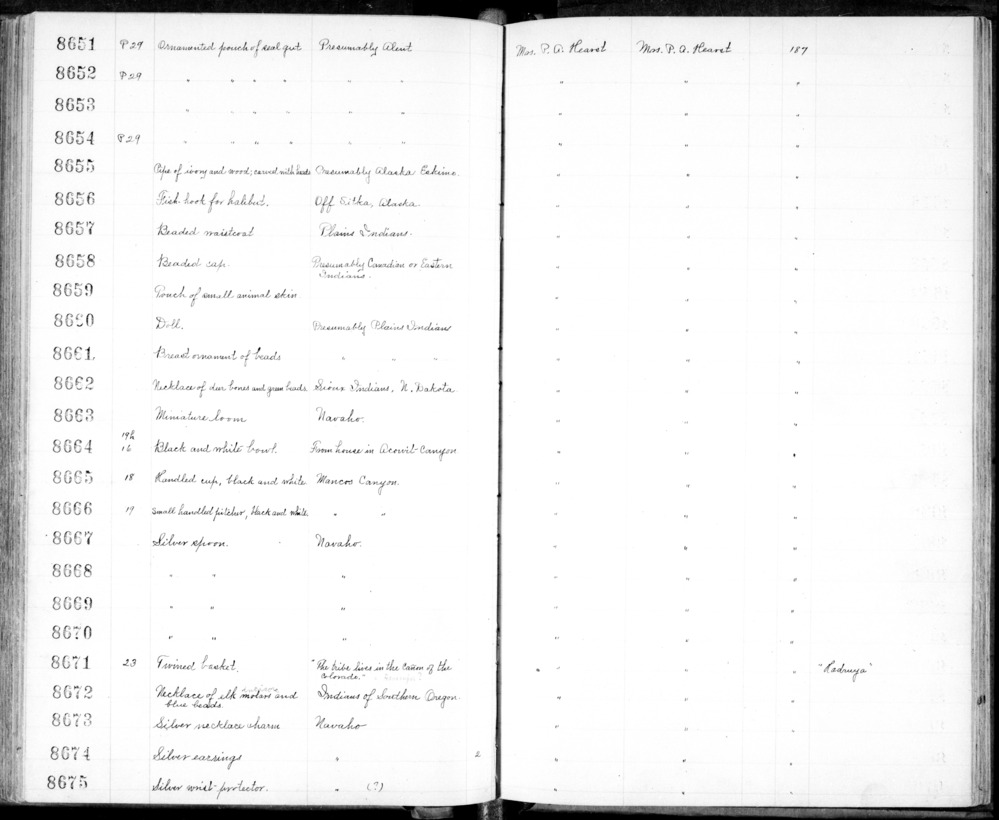 8651 P29 Ornamented pouch of seal gut Presumably Aleut Mrs. P. A. Hearst Mrs. P. A. Hearst 187
8652 P29 " " " " " " " " " "
8653 " " " " " " " " "
8654 P29 " " " " " " " " "
8655 Pipe of ivory and wood; carved with heads Presumably Alaska Eskimo. " " "
8656 Fish hook for halibut. Off Sitka, Alaska. " " "
8657 Beaded waistcoat Plains Indians. " " "
8658 Beaded cap. Presumably Canadian or Eastern " " "
Indians.
8659 Pouch of small animal skin " " "
8660 Doll. Presumably Plains Indians " " "
8661 Breast ornament of beads " " " " " "
8662 Necklace of deer bones and green beads. Sioux Indians, N. Dakota. " " "
8663 Miniature loom Navaho. " " "
19h
8664 16 Black and white bowl. From house in Acowit Canyon " " "
8665 18 Handled cup, black and white Mancos Canyon. " " "
8666 19 Small handled pitcher, black and white. " " " " "
8667 Silver spoon. Navaho. " " "
8668 " " " " " "
8669 " " " " " "
8670 " " " " " "
8671 23 Twined basket. "The tribe lives in the cañon of the " " " "Kadmya"
Colorado."
8672 Necklace of elk molars and Indians of Southern Oregon. " " "
blue beads.
8673 Silver necklace charm Navaho " " "
8674 Silver earrings " 2 " " "
8675 Silver wrist-protector. " (?) " " "